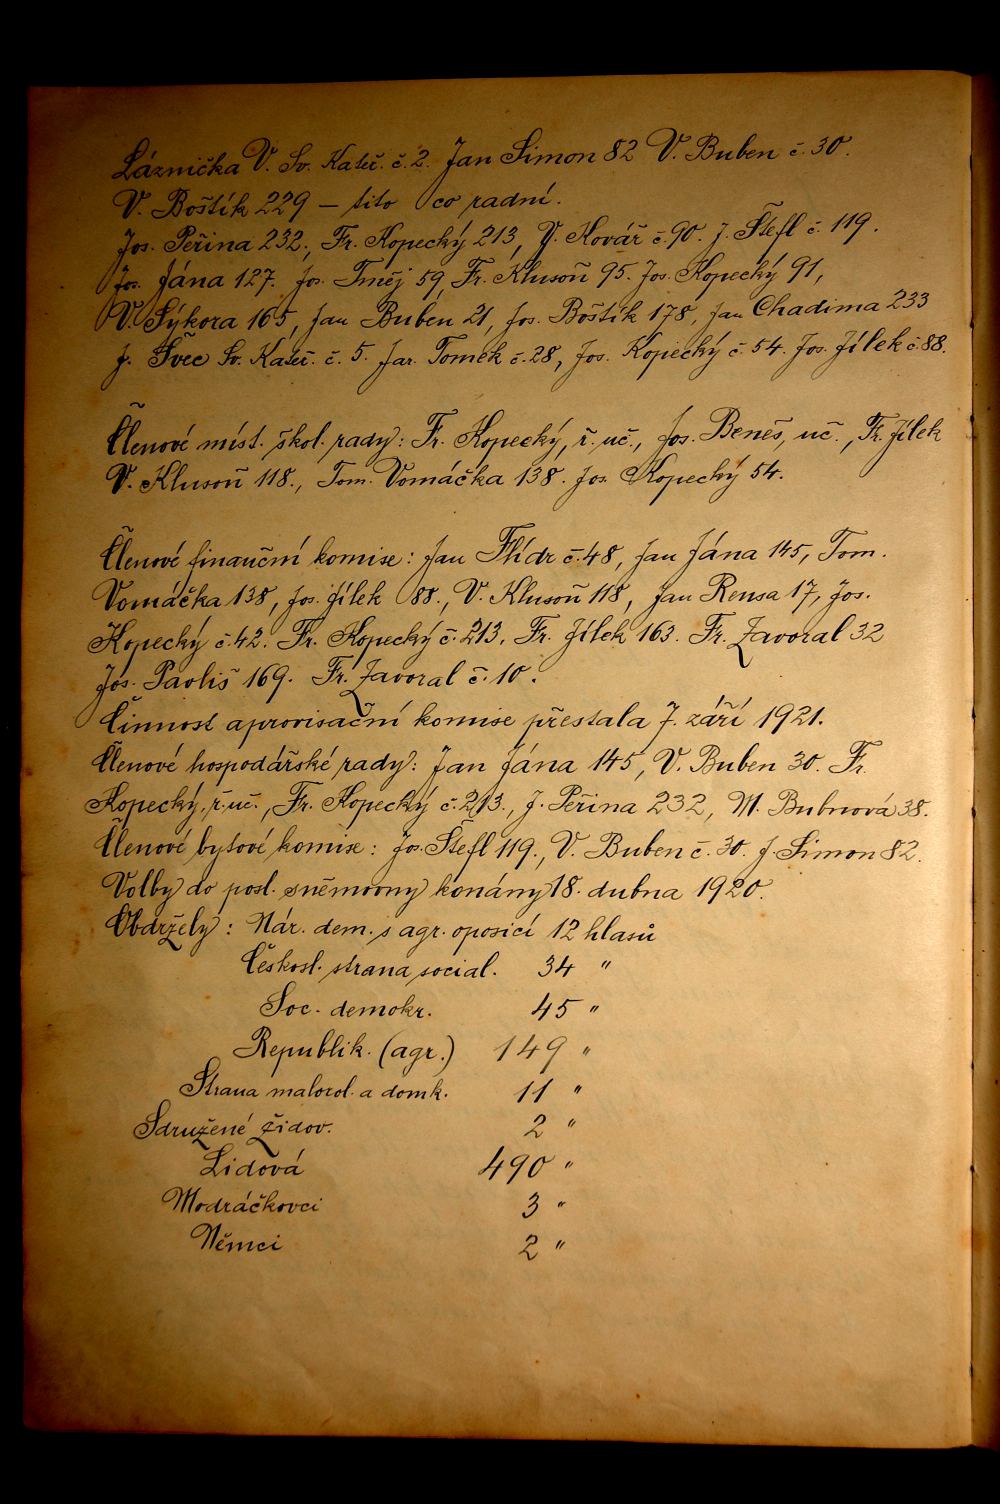 Láznička V. Sv. Kateř. č. 2. Jan Simon 82 V. Buben č. 30.
V. Boštík 229 – tito co radní.
Jos. Peřina 232., Fr. Kopecký 213, V. Kovář č. 90. J. Štefl č. 119.
Jos. Jána 127. Jos. Tměj 59 Fr. Klusoň 95. Jos. Kopecký 91,
V. Sýkora 165, Jan Buben 21, Jos. Boštík 178, Jan Chadima 233
J. Švec Sv. Kateř. č. 5. Jar. Tomek č. 28, Jos. Kopecký č. 54. Jos. Jílek č. 88.
Členové míst. škol. rady: Fr. Kopecký, ř. uč., Jos. Beneš, uč., Fr. Jílek
V. Klusoň 118., Tom. Vomáčka 138. Jos. Kopecký 54.
Členové finanční komise: Jan Flídr č. 48, Jan Jána 145, Tom.
Vomáčka 138, Jos. Jílek 88., V. Klusoň 118, Jan Rensa 17, Jos.
Kopecký č. 42. Fr. Kopecký č. 213. Fr. Jílek 163. Fr. Zavoral 32
Jos. Pavliš 169. Fr. Zavoral č. 10.
Činnost aprovisační komise přestala 7. září 1921.
Členové hospodářské rady: Jan Jána 145, V. Buben 30. Fr.
Kopecký, ř. uč., Fr. Kopecký č. 213., J. Peřina 232, M. Bubnová 38.
Členové bytové komise: Jos. Štefl 119., V. Buben č. 30. J. Simon 82.
Volby do posl. sněmovny konány 18. dubna 1920.
Obdržely: Nár. dem. s agr. oposicí 12 hlasů
Českosl. strana social. 34 "
Soc. demokr. 45 "
Republik. (agr.) 149 "
Strana malorol. a domk. 11 "
Sdružené židov. 2 "
Lidová 490 "
Modráčkovci 3 "
Němci 2 "